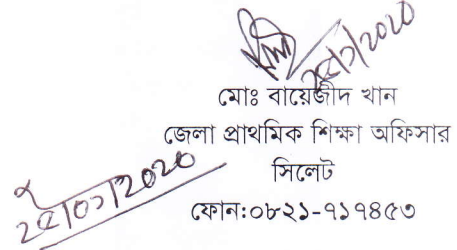 ২৫/১/২০২০
মোঃ বায়েজীদ খান
জেলা প্রাথমিক শিক্ষা অফিসার
সিলেট
ফোন:০৮২১-৭১৭৪৫৩
২৫/০১/২০২০